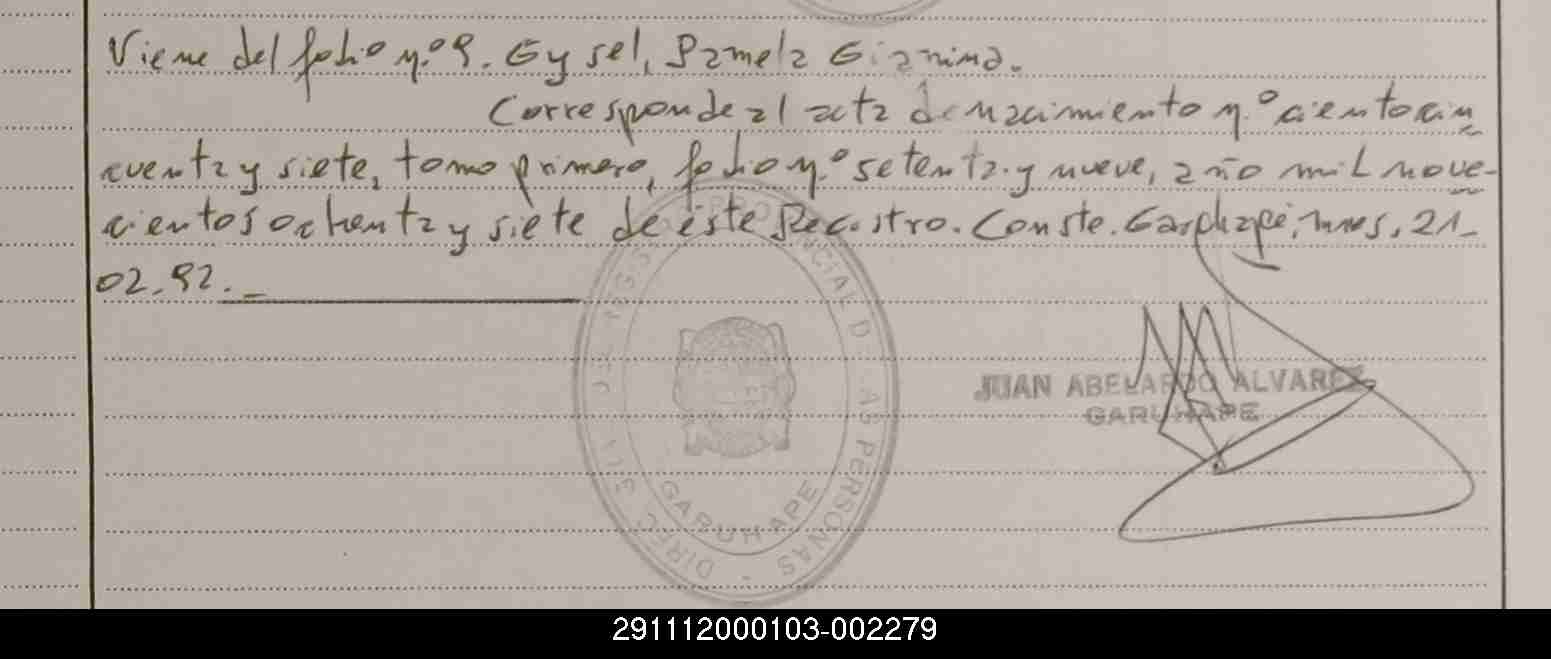 Viene del folio n.º 9. Gysel, Pamela Giannina.
Corresponde al acta de nacimiento n.º ciento cin
cuenta y siete, tomo primero, folio n.º setenta y nueve, año mil nove-
cientos ochenta y siete de éste Registro. Conste. Garuhapé, Mnes, 21-
02-92.-
JUAN ABELARDO ALVAREZ
GARUHAPE
PROVINCIAL DE LAS PERSONAS
GARUHAPE
291112000103-002279